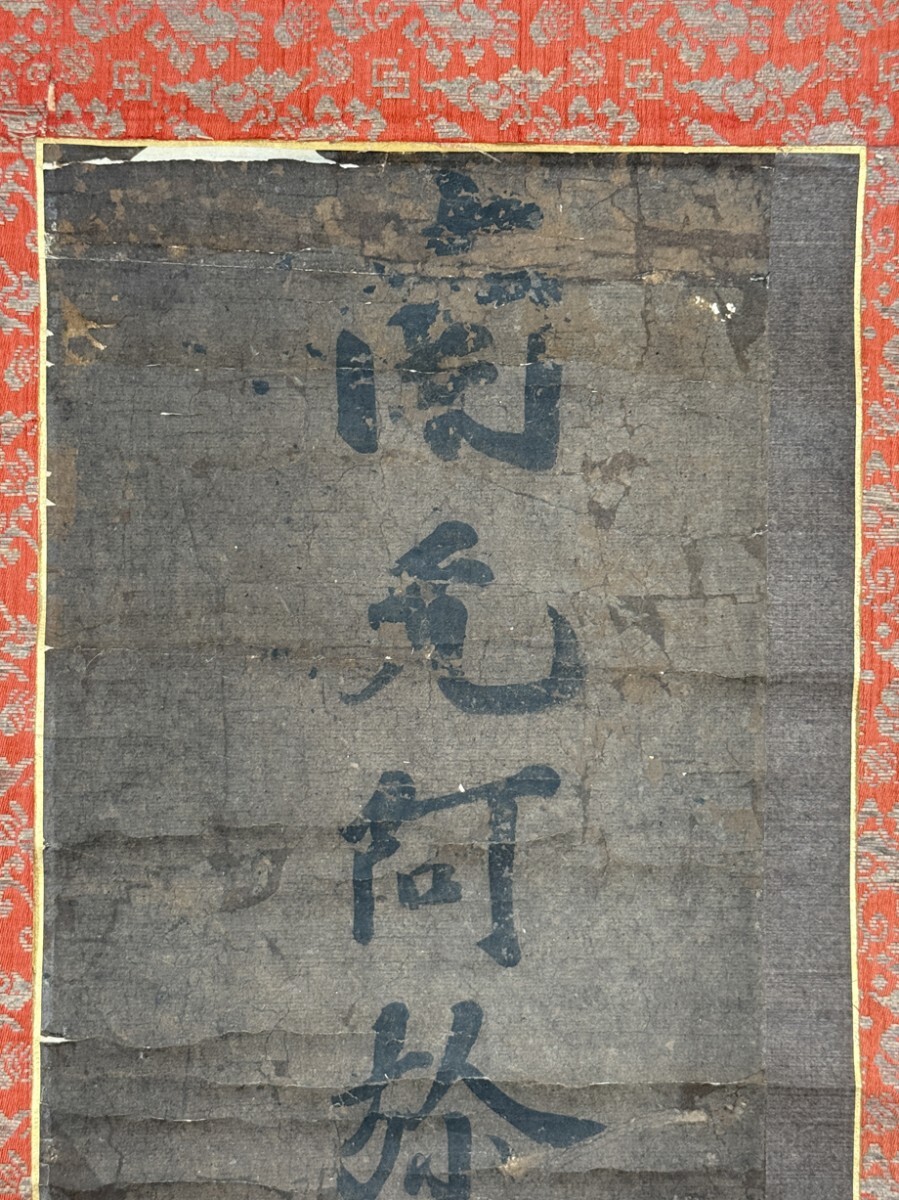 南无阿弥